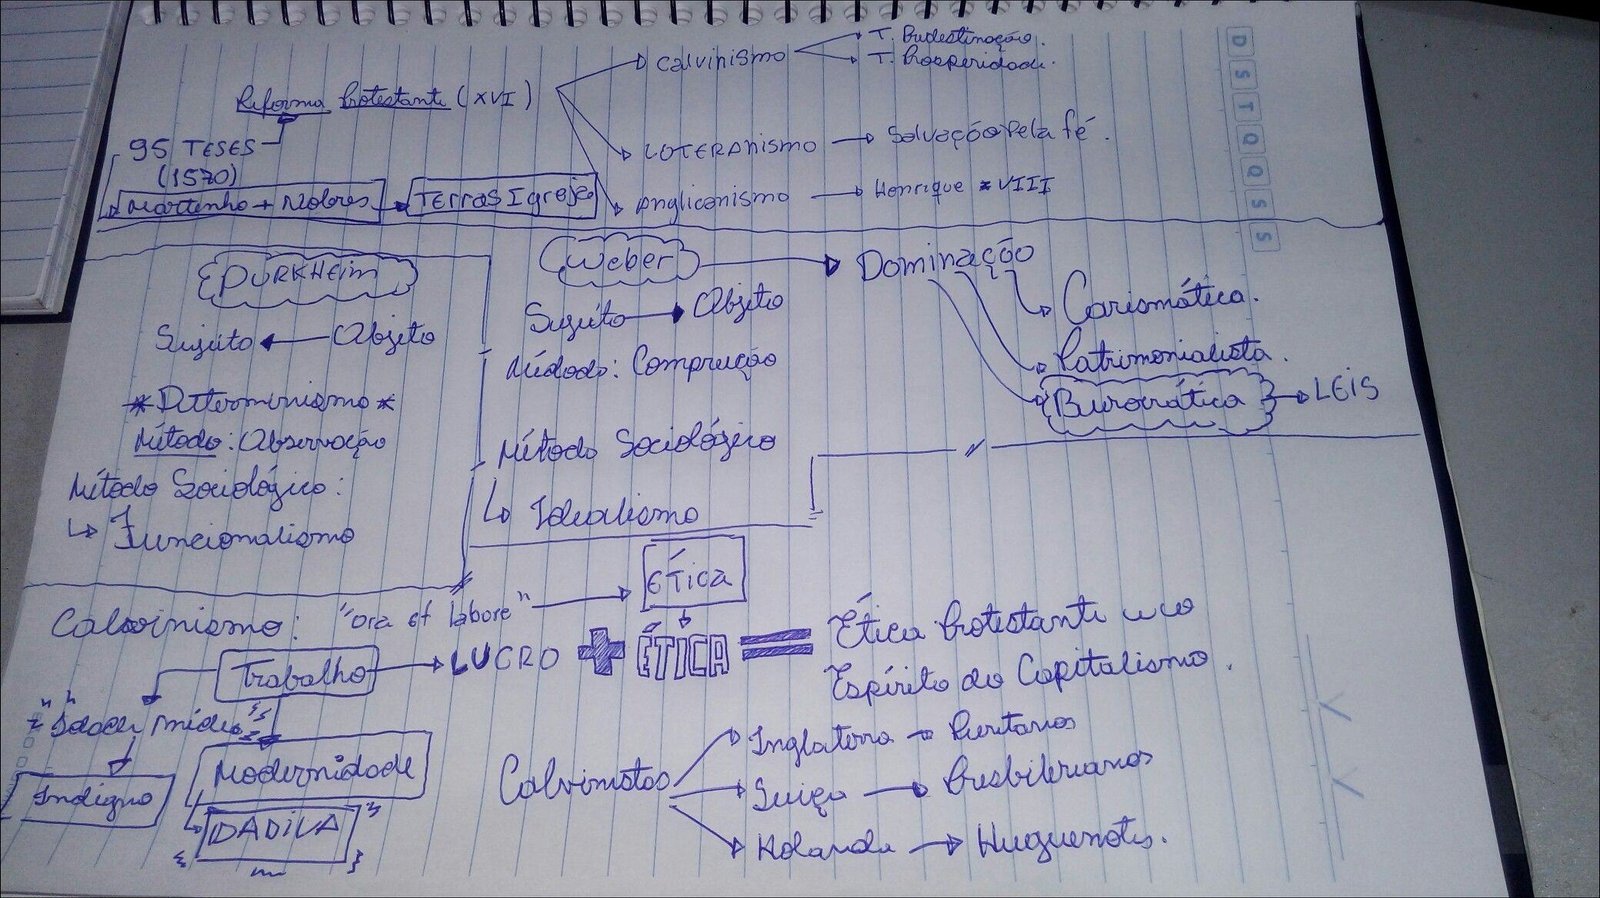 Reforma Protestante (XVI)
Calvinismo
T. Predestinação.
T. Prosperidade.
LUTERANISMO
Salvação Pela fé.
Anglicanismo
Henrique VIII
95 TESES
(1570)
Martinho + Nobres
Terras Igreja
D S T Q Q S S
DURKHEIM
Sujeito
Objeto
* Determinismo *
Método: Observação
Método Sociológico:
Funcionalismo
Weber
Sujeito
Objeto
Método: Compreção
Método Sociológico
Idealismo
Dominação
Carismática.
Patrimonialista.
Burocrática
LEIS
Calvinismo: "ora et labore"
ÉTICA
Trabalho
LUCRO + ÉTICA =
Ética Protestante e o
Espírito do Capitalismo.
Indigno
Modernidade
DADIVA
Calvinistas
Inglaterra
Puritanos
Suiça
Presbiterianos
Holanda
Huguenotes.